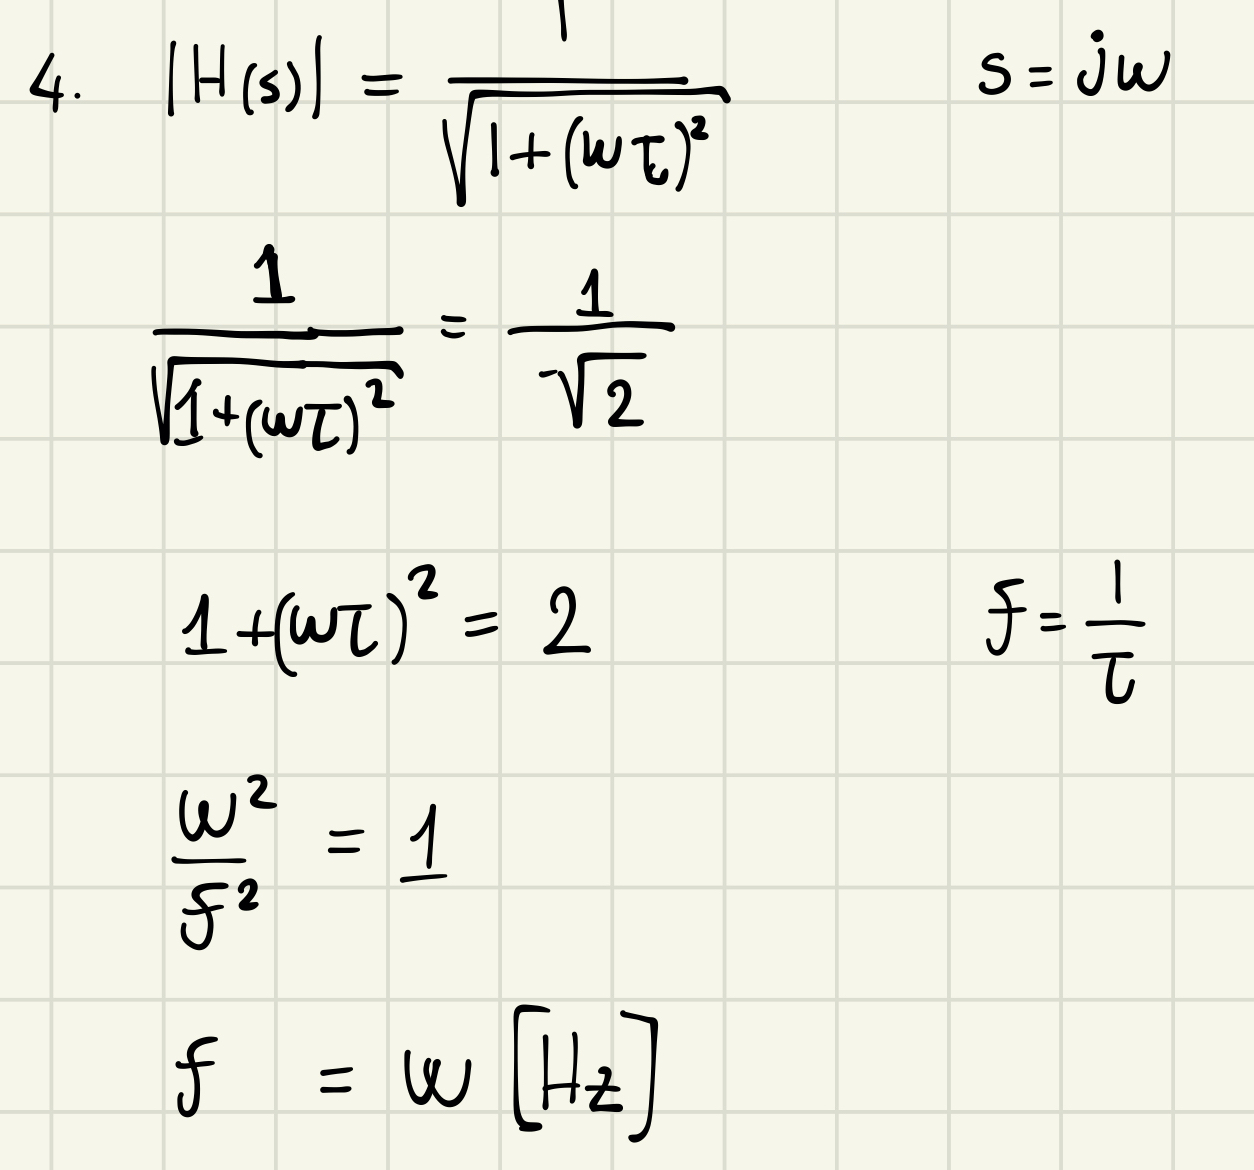 4. |H(s)| = 1/√(1+(ωτ)²) s = jω
1/√(1+(ωτ)²) = 1/√2
1+(ωτ)² = 2 f = 1/τ
ω²/f² = 1
f = ω [Hz]